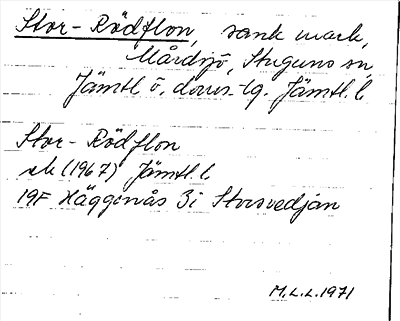 Stor-Rödflon, sank mark,
Mårdsjö, Stuguns sn,
Jämtl ö. doms-lg. Jämtl. l
Stor-Rödflon
ek (1967) Jämtl. l
19F Häggenås 3i Storsvedjan
M.L.L. 1971